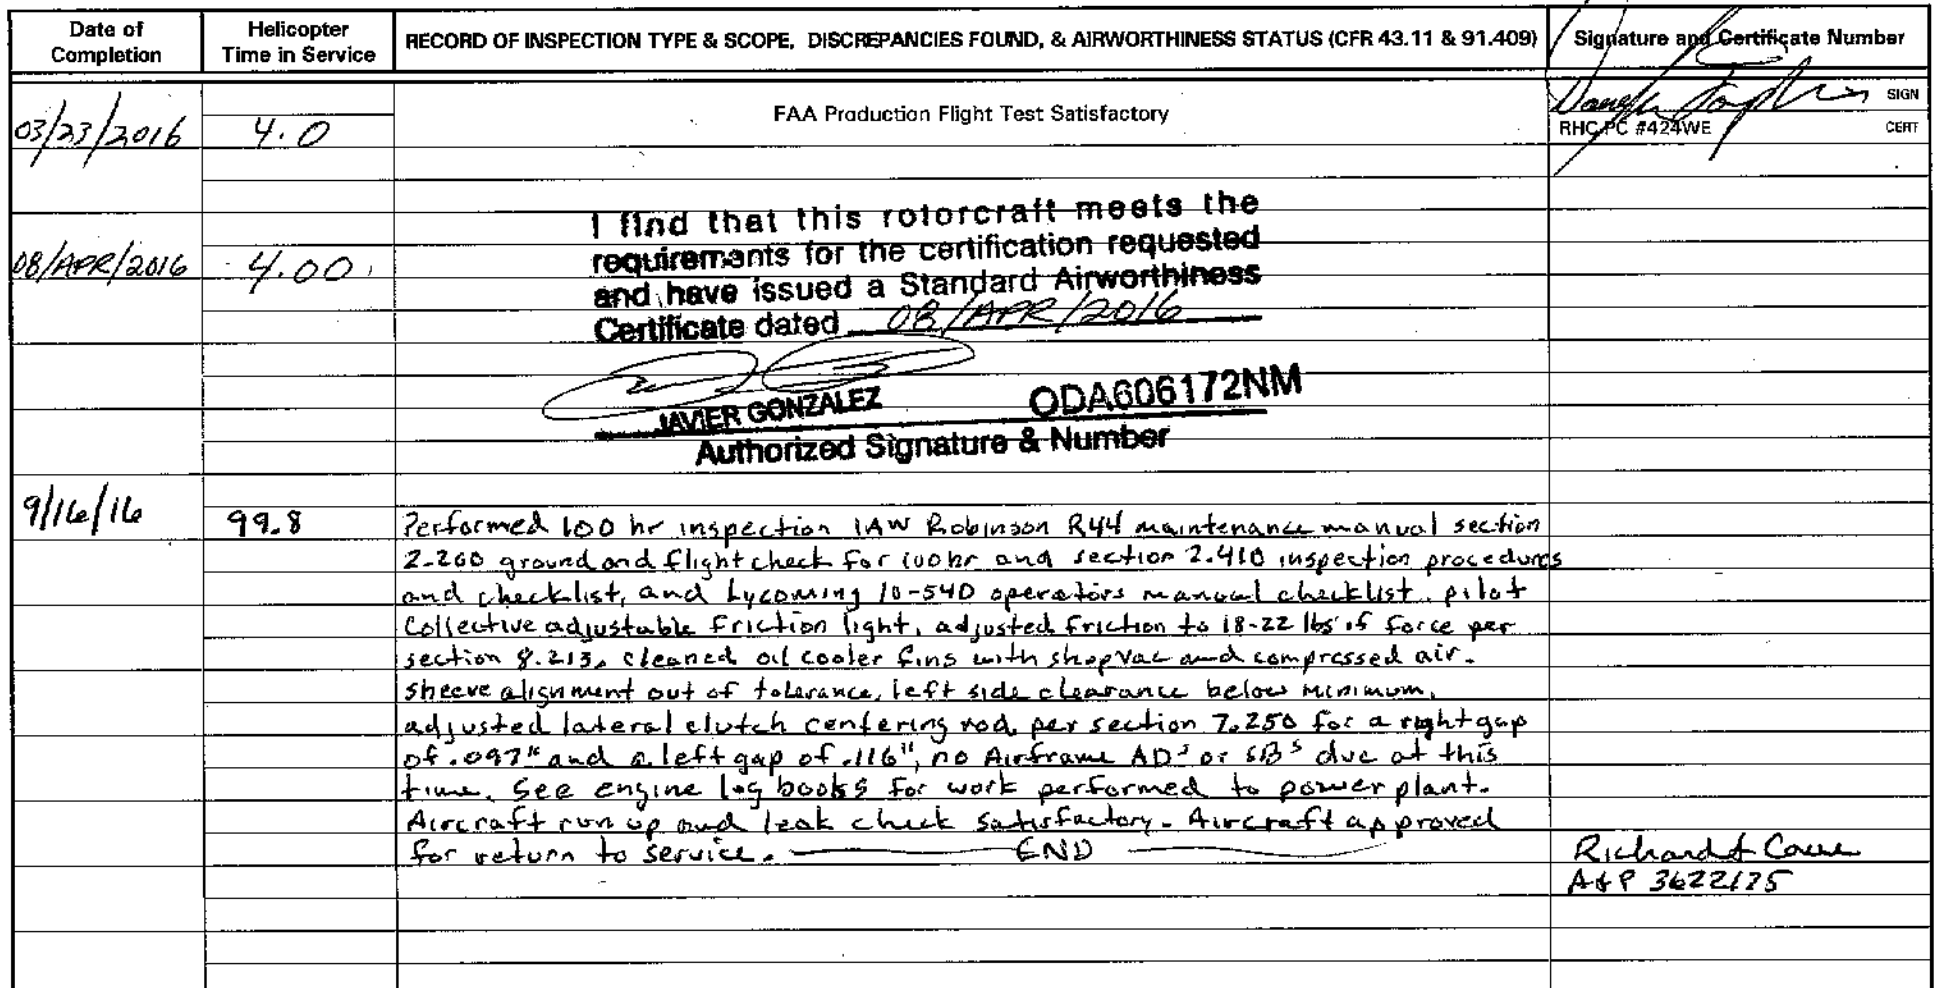 Date of Completion
Helicopter Time in Service
RECORD OF INSPECTION TYPE & SCOPE, DISCREPANCIES FOUND, & AIRWORTHINESS STATUS (CFR 43.11 & 91.409)
Signature and Certificate Number
03/23/2016 4.0 FAA Production Flight Test Satisfactory
SIGN
RHC PC #424WE CERT
I find that this rotorcraft meets the
08/APR/2016 4.00 requirements for the certification requested
and have issued a Standard Airworthiness
Certificate dated 08/APR/2016
JAVIER GONZALEZ ODA606172NM
Authorized Signature & Number
9/16/16 99.8 Performed 100 hr inspection IAW Robinson R44 maintenance manual section
2.260 ground and flight check for 100 hr and section 2.410 inspection procedures
and checklist, and Lycoming IO-540 operators manual checklist. pilot
Collective adjustable friction light, adjusted friction to 18-22 lbs of force per
section 8.213. cleaned oil cooler fins with shop vac and compressed air.
sheeve alignment out of tolerance, left side clearance below minimum,
adjusted lateral clutch centering rod per section 7.250 for a right gap
of .097" and a left gap of .116", no Airframe ADs or SBs due at this
time. See engine log books for work performed to power plant.
Aircraft run up and leak check satisfactory. Aircraft approved
for return to service. END
Richard
A&P 3622175